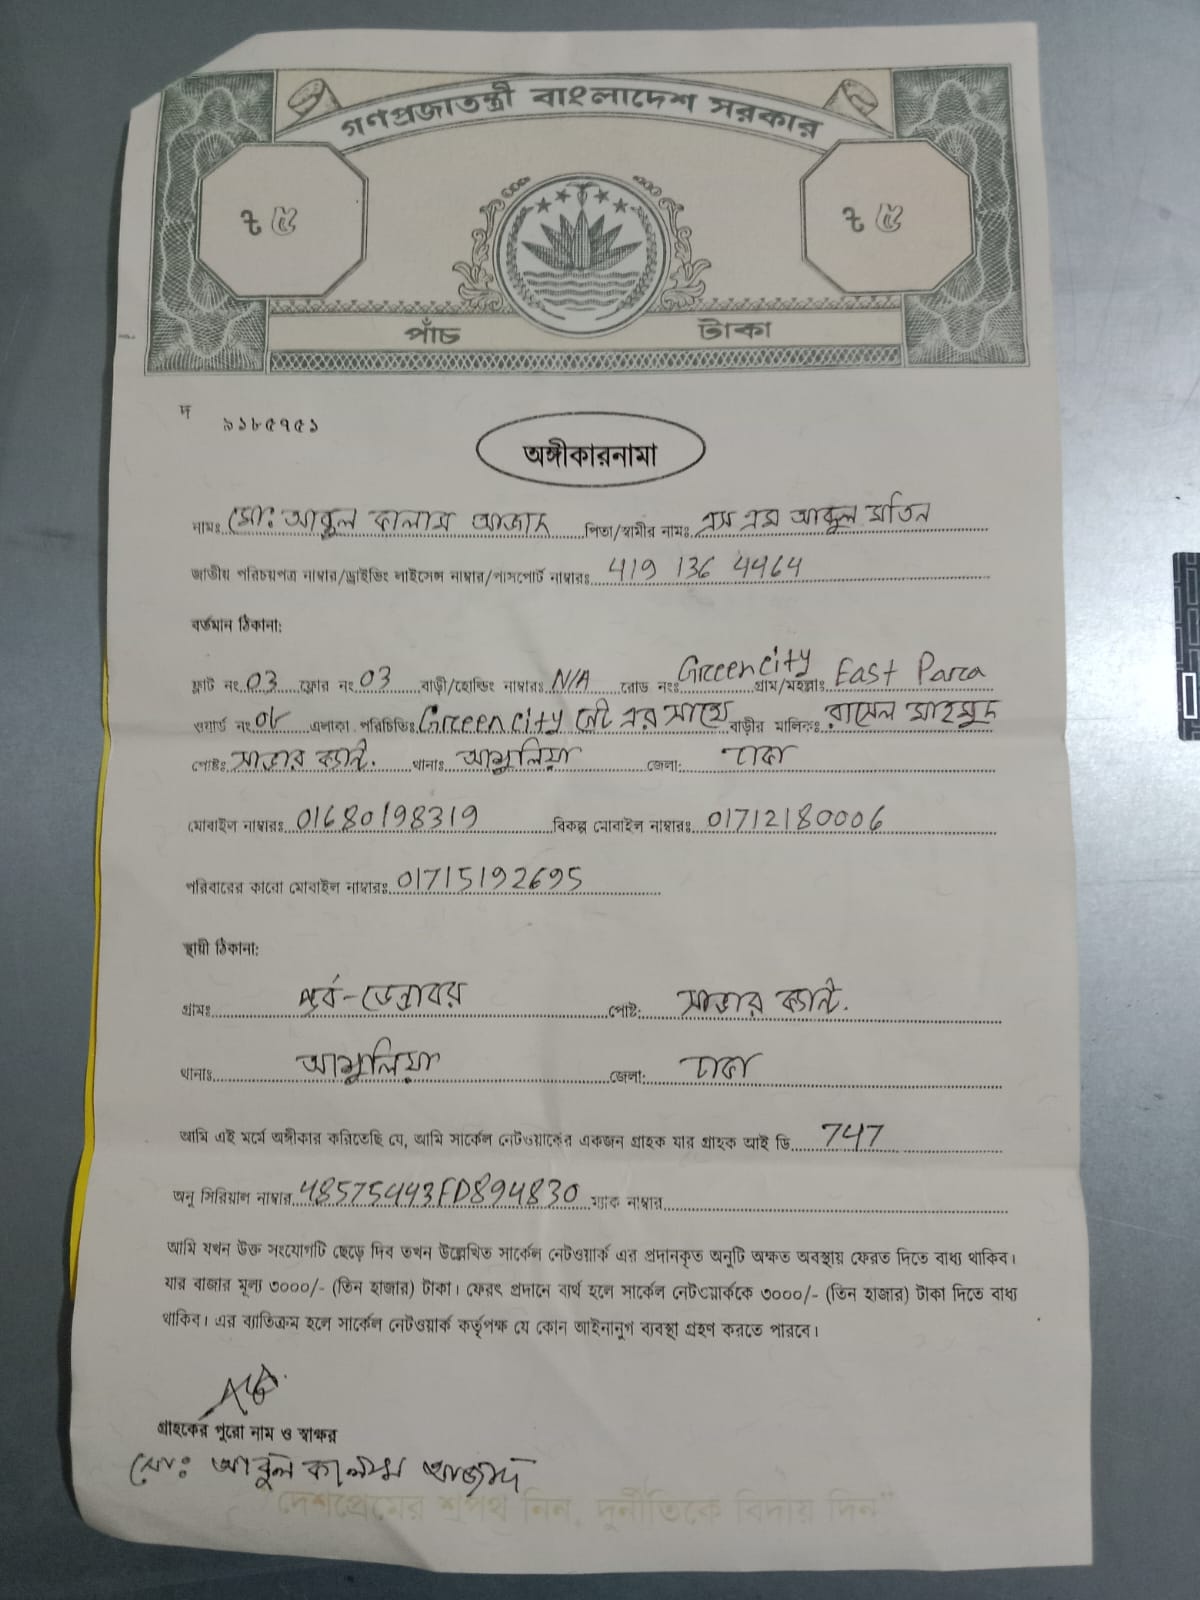 গণপ্রজাতন্ত্রী বাংলাদেশ সরকার
৳ ৫ ৳ ৫
পাঁচ টাকা
দ
৯১৮৫৭৫১
অঙ্গীকারনামা
নামঃ মোঃ আবুল কালাম আজাদ পিতা/স্বামীর নামঃ এস এম আব্দুল মতিন
জাতীয় পরিচয়পত্র নাম্বার/ড্রাইভিং লাইসেন্স নাম্বার/পাসপোর্ট নাম্বারঃ 419 136 4464
বর্তমান ঠিকানা:
ফ্লাট নং 03 ফ্লোর নং 03 বাড়ী/হোল্ডিং নাম্বারঃ N/A রোড নংঃ Green city গ্রাম/মহল্লাঃ East Para
ওয়ার্ড নং 08 এলাকা পরিচিতিঃ Green city গেট এর সাথে বাড়ীর মালিকঃ রাসেল মাহমুদ
পোষ্টঃ সাভার ক্যান্ট. থানাঃ আশুলিয়া জেলা: ঢাকা
মোবাইল নাম্বারঃ 01680198319 বিকল্প মোবাইল নাম্বারঃ 01712180006
পরিবারের কারো মোবাইল নাম্বারঃ 01715192695
স্থায়ী ঠিকানা:
গ্রামঃ পূর্ব-ডেন্ডাবর পোষ্ট: সাভার ক্যান্ট.
থানাঃ আশুলিয়া জেলা: ঢাকা
আমি এই মর্মে অঙ্গীকার করিতেছি যে, আমি সার্কেল নেটওয়াকের একজন গ্রাহক যার গ্রাহক আই ডি 747
অনু সিরিয়াল নাম্বার 48575443FD894830 ম্যাক নাম্বার
আমি যখন উক্ত সংযোগটি ছেড়ে দিব তখন উল্লেখিত সার্কেল নেটওয়ার্ক এর প্রদানকৃত অনুটি অক্ষত অবস্থায় ফেরত দিতে বাধ্য থাকিব।
যার বাজার মূল্য ৩০০০/- (তিন হাজার) টাকা। ফেরৎ প্রদানে ব্যর্থ হলে সার্কেল নেটওয়ার্ককে ৩০০০/- (তিন হাজার) টাকা দিতে বাধ্য
থাকিব। এর ব্যাতিক্রম হলে সার্কেল নেটওয়ার্ক কর্তৃপক্ষ যে কোন আইনানুগ ব্যবস্থা গ্রহণ করতে পারবে।
গ্রাহকের পুরো নাম ও স্বাক্ষর
মোঃ আবুল কালাম আজাদ
"দেশপ্রেমের শপথ নিন, দুর্নীতিকে বিদায় দিন"